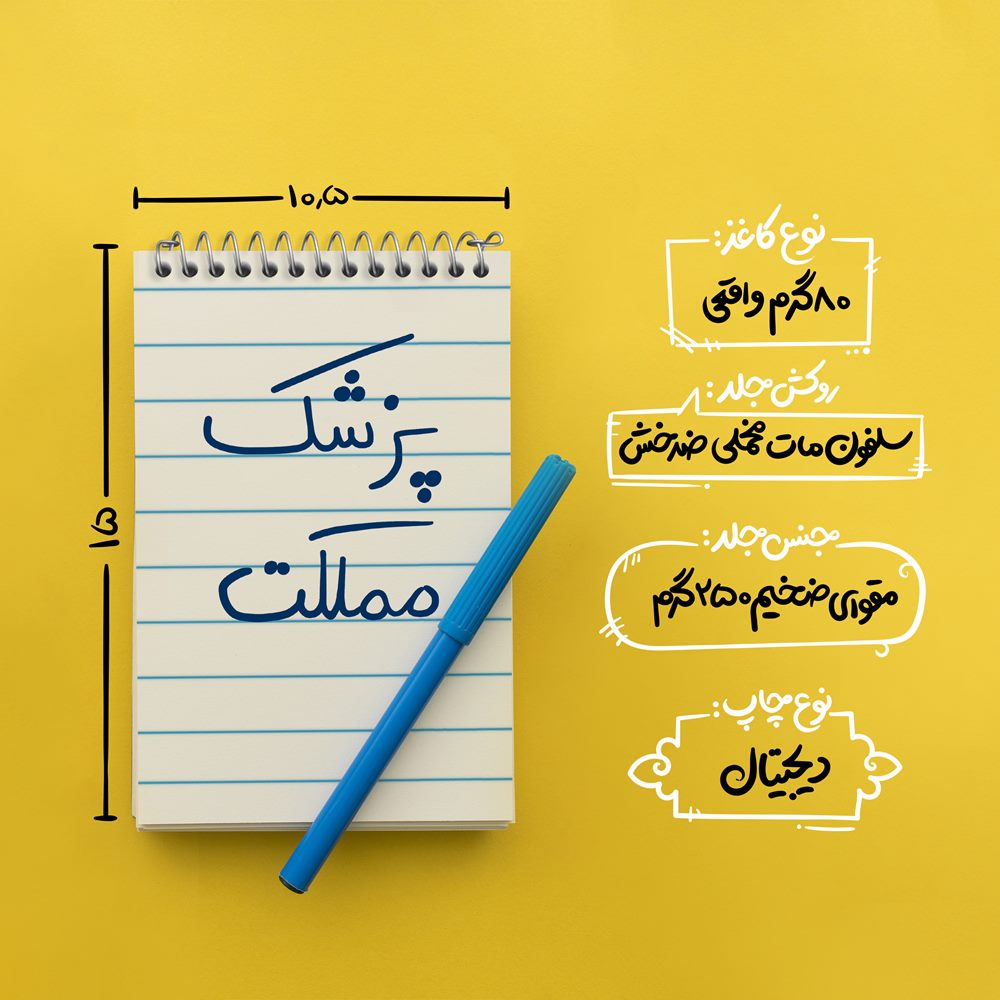 ۱۰٫۵
۱۵
پزشک
مملکت
نوع کاغذ:
۸۰ گرم واقعی
روکش جلد:
سلفون مات مخملی ضدخش
جنس جلد:
مقوای ضخیم ۲۵۰ گرم
نوع چاپ:
دیجیتال